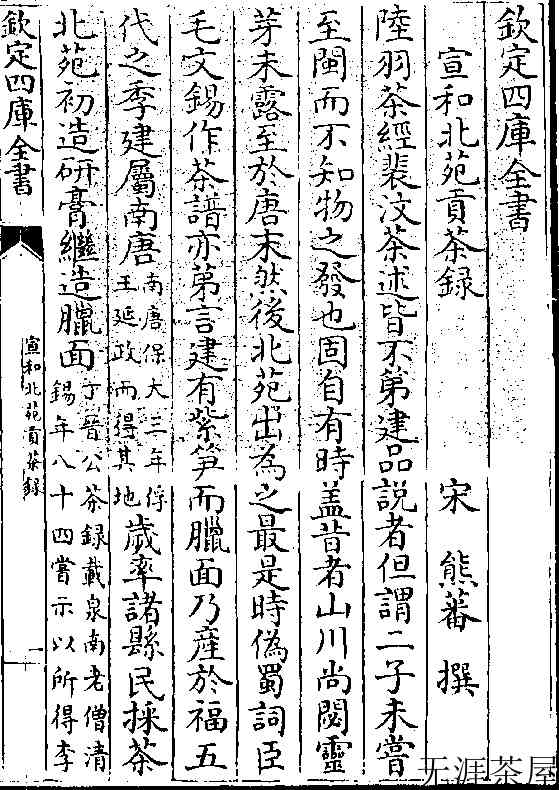 欽定四庫全書
宣和北苑貢茶録
宋 熊蕃 撰
陸羽茶經裴汶茶述皆不第建品説者但謂二子未嘗
至閩而不知物之發也固自有時盖昔者山川尚閟靈
芽未露至於唐末然後北苑出為之最是時偽蜀詞臣
毛文錫作茶譜亦第言建有紫笋而臘面乃產於福五
代之季建屬南唐南唐保大三年俘王延政而得其地歲率諸縣民採茶
北苑初造研膏繼造臘面丁晉公茶録載泉南老僧清錫年八十四嘗示以所得李
欽定四庫全書
宣和北苑貢茶録
一
无涯茶屋